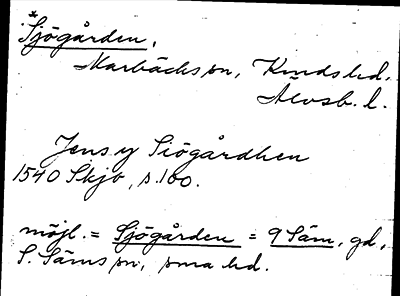 *Sjögården,
Marbäcks sn, Kinds hd.
Älvsb. l.
Jens y Siögårdhen
1540 Skjb, s. 100.
möjl. = Sjögården = 9 Säm, gd,
S. Säms sn, sma hd.